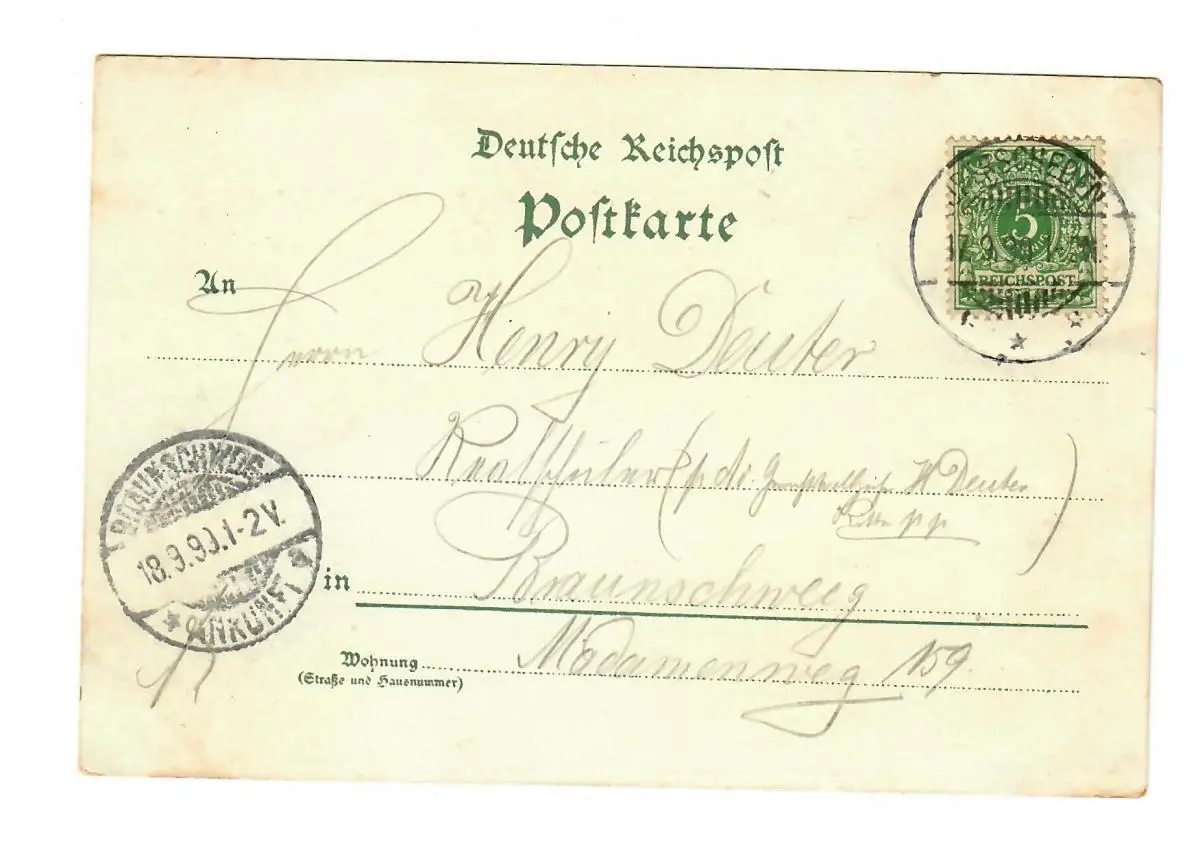 Deutsche Reichspost
Postkarte
An
Herrn Henry Deuter
Realschüler (p. Adr. H Deuter
in Braunschweig
Wohnung Madamenweg 159.
(Straße und Hausnummer)
5
REICHSPOST
17.9.
BRAUNSCHWEIG
18.9.99.1-2V.
ANKUNFT